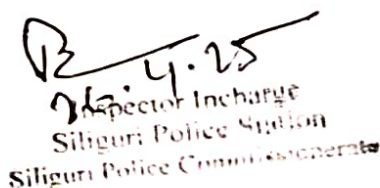 .4.25
Inspector Incharge
Siliguri Police Station
Siliguri Police Commissionerate